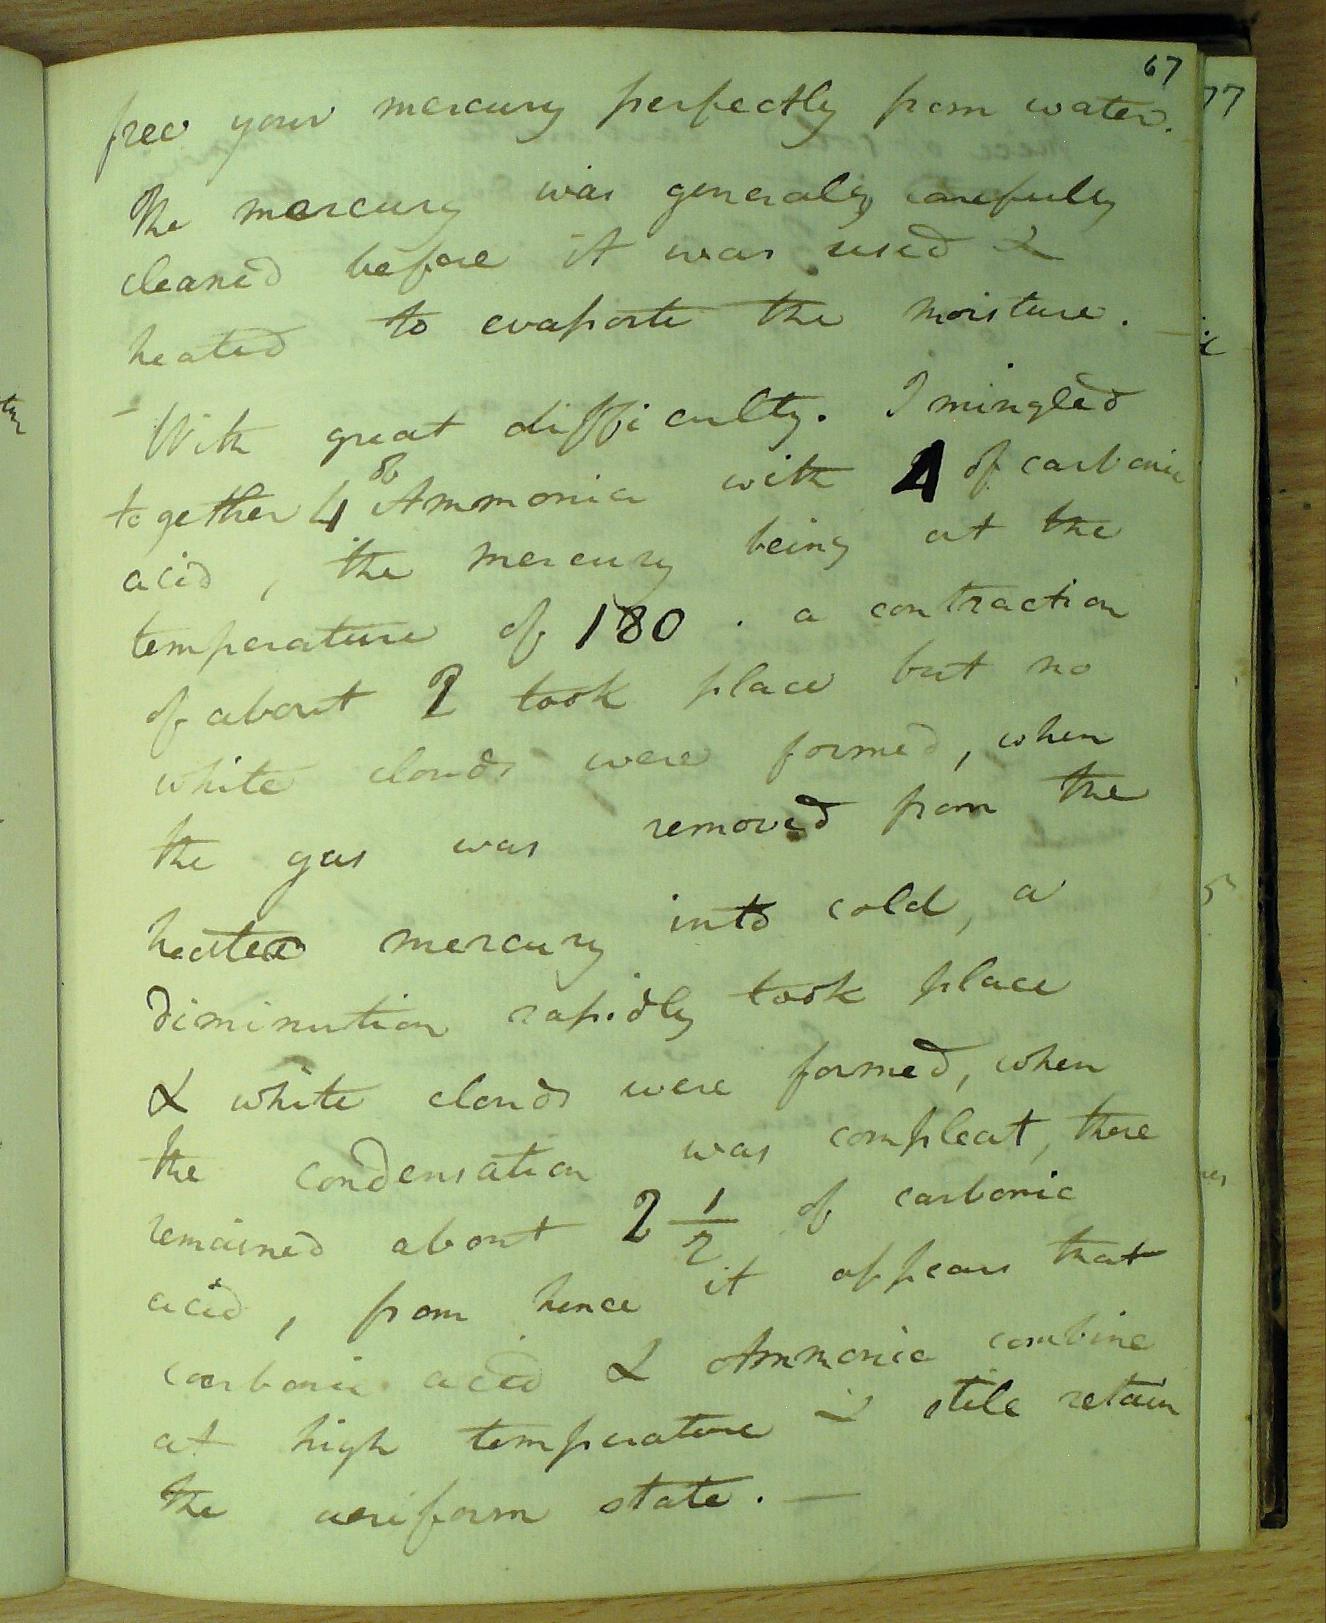 67
free your mercury perfectly from water.
The mercury was generally carefully
cleaned before it was used &
heated to evaporte the moisture. —
- With great difficulty. I mingled
of
together 4 Ammonia with 4 of carbonic
acid, the mercury being at the
temperature of 180. a contraction
of about 2 took place but no
white clouds were formed, when
the gas was removed from the
heated mercury into cold, a
diminution rapidly took place
& white clouds were formed, when
the condensation was compleat, there
remained about 2 1/2 of carbonic
acid, from hence it appears that
carbonic acid & Ammonia combine
at high temperature & still retain
the aeriform state. —
77